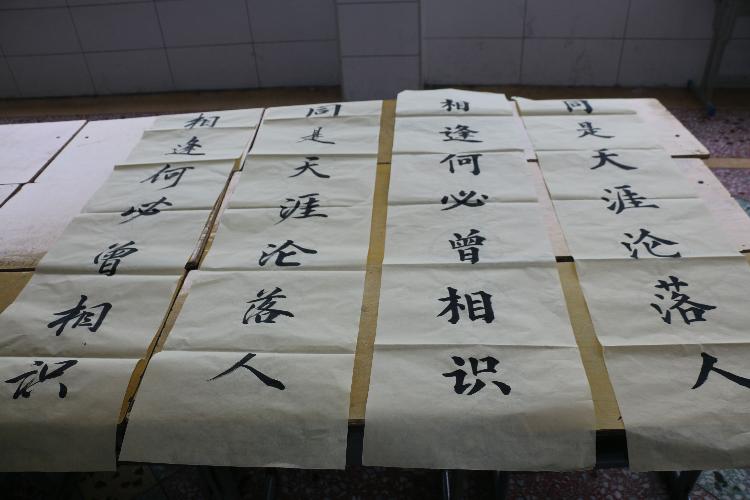 同是天涯沦落人
相逢何必曾相识
同是天涯沦落人
相逢何必曾相识